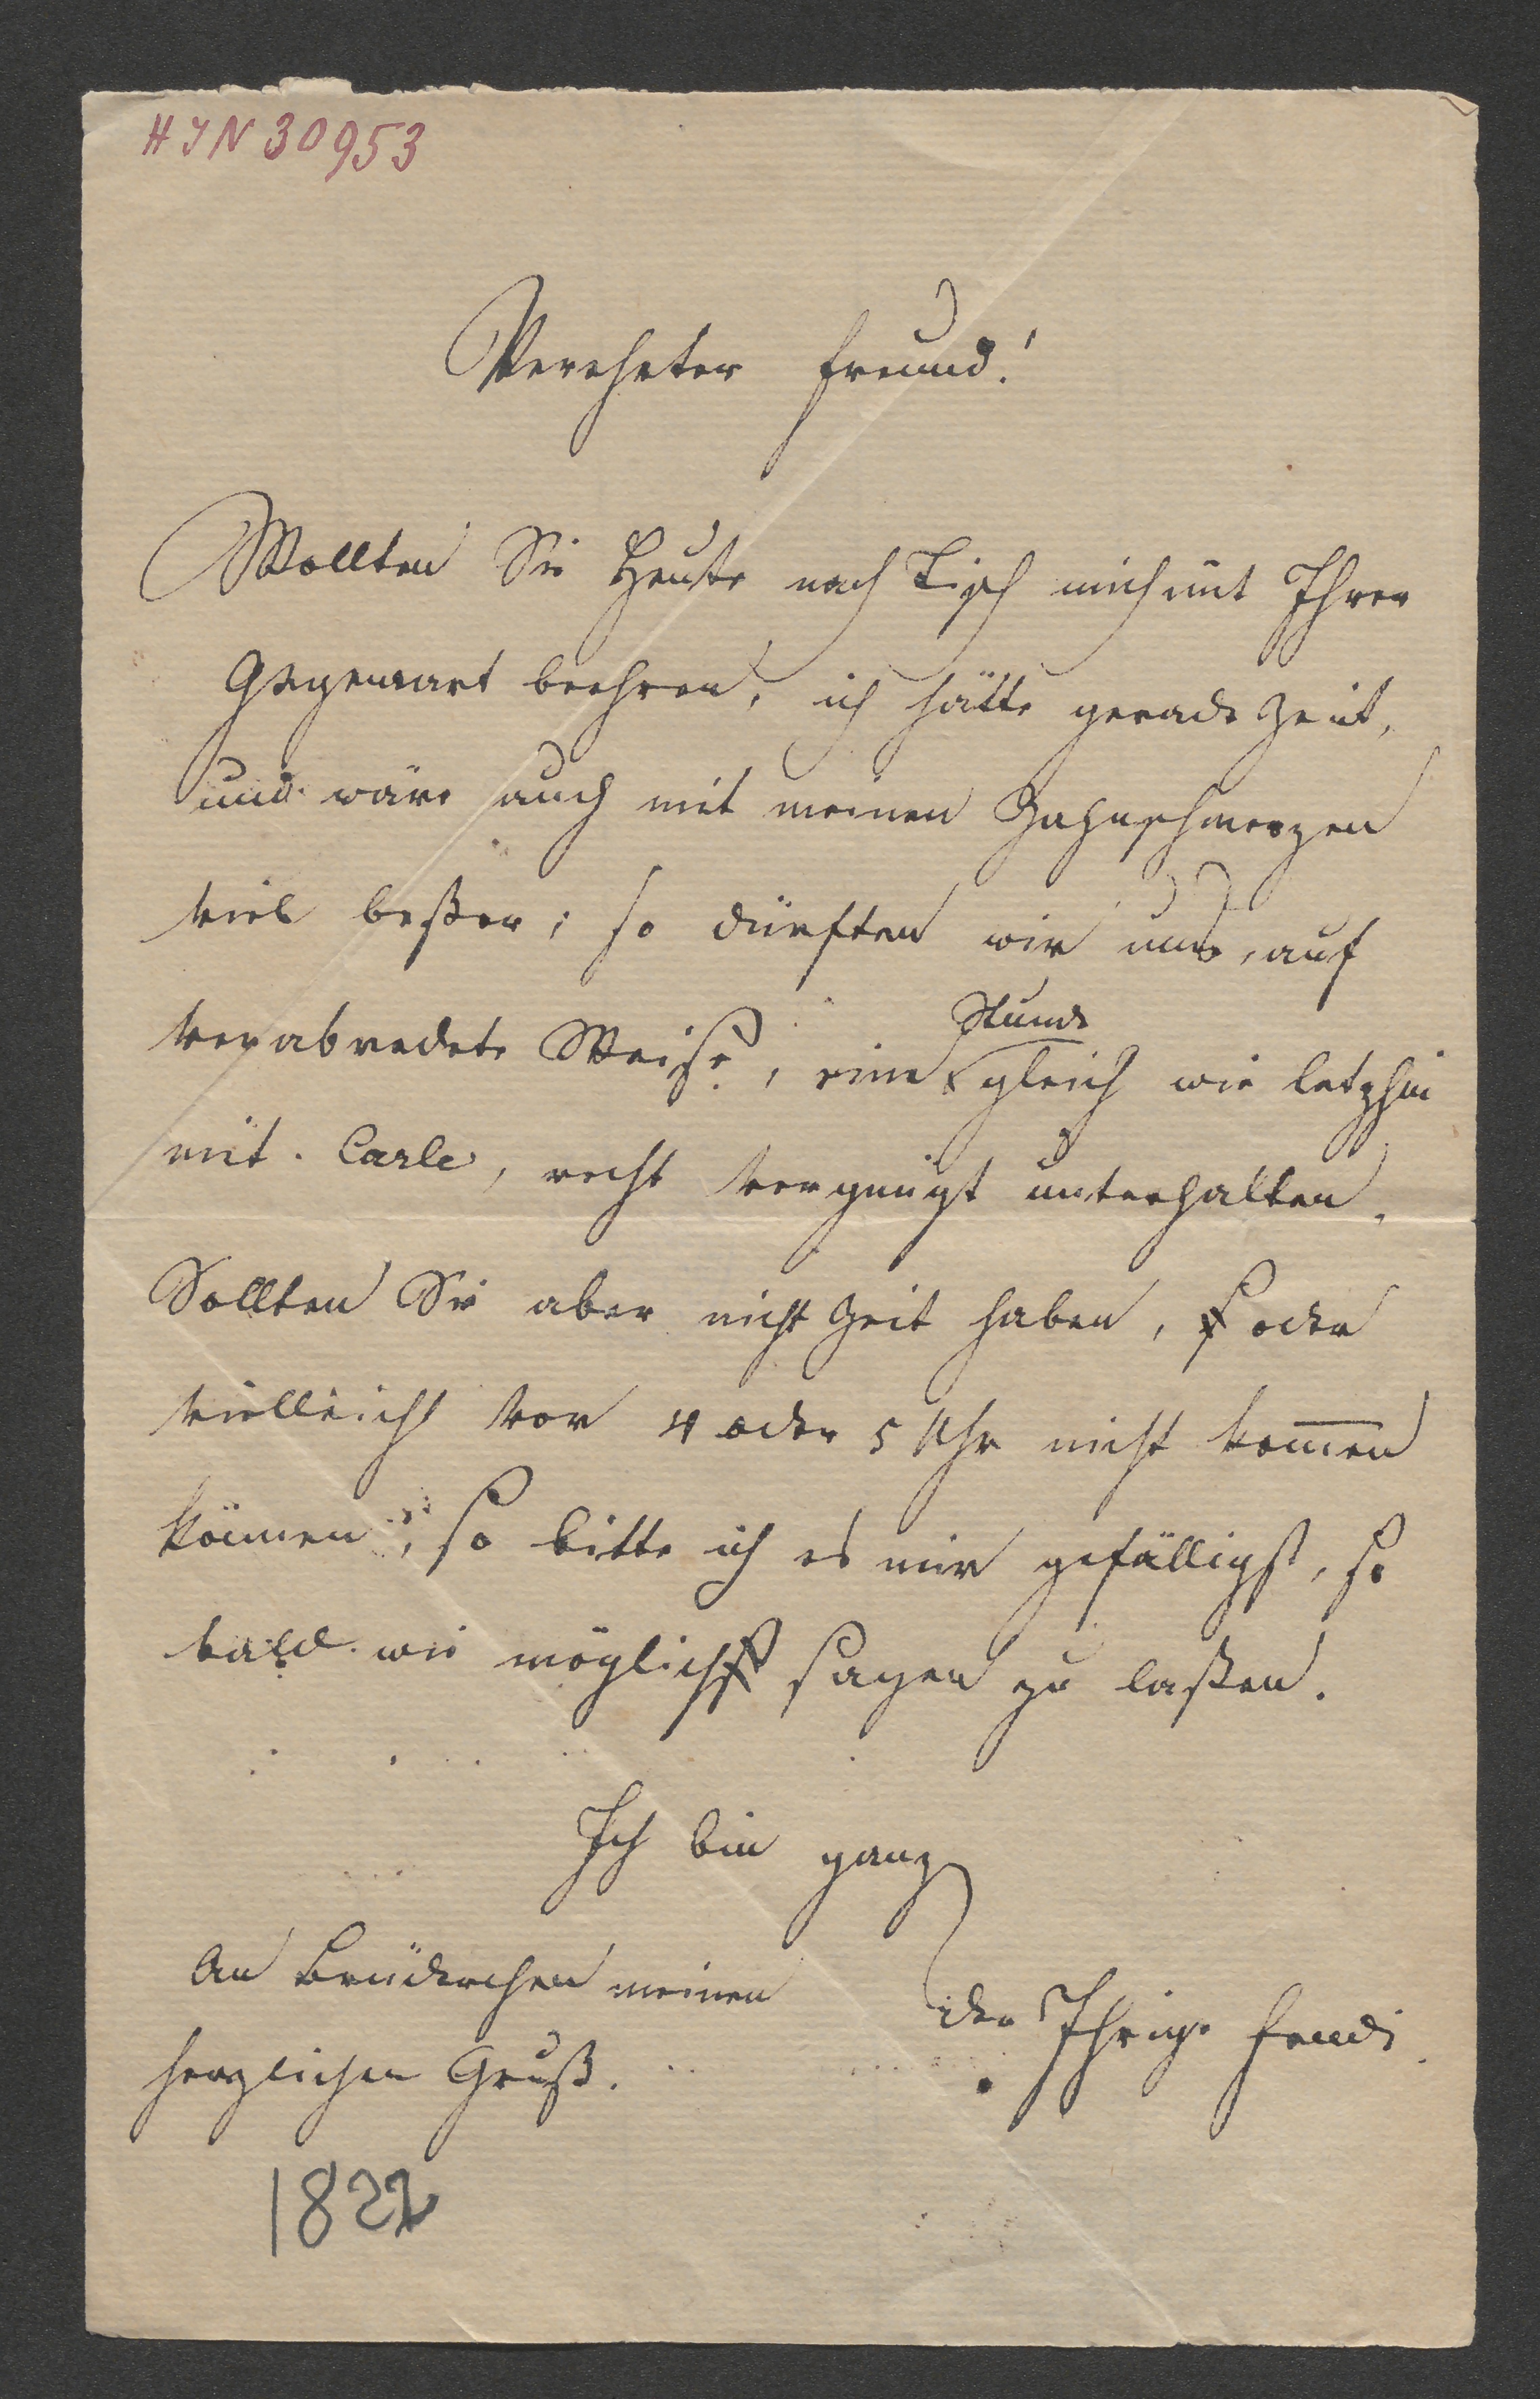 HJN 30953
Verehrter Freund!
Wollten Sie Heute nach Tisch mich mit Ihrer
Gegenwart beehren, ich hätte gerade Zeit,
und wäre auch mit meinen Zahnschmerzen
viel beßer; so dürften wir uns, auf
verabredete Weise, eine Stunde gleich wie letzhin
mit Carle, recht vergnügt unterhalten.
Sollten Sie aber nicht Zeit haben, oder
vielleicht vor 4 oder 5 Uhr nicht kom̅en
können; so bitte ich es mir gefälligst, so
bald wie möglichst sagen zu laßen.
Ich bin ganz
der Ihrige Fendi
An Brüderchen meinen
herzlichen Gruß.
1822